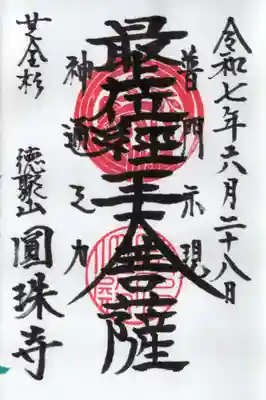 令和七年六月二十八日
普門示現
最上位経王大菩薩
神通之力
廿全杉
徳聚山
圓珠寺